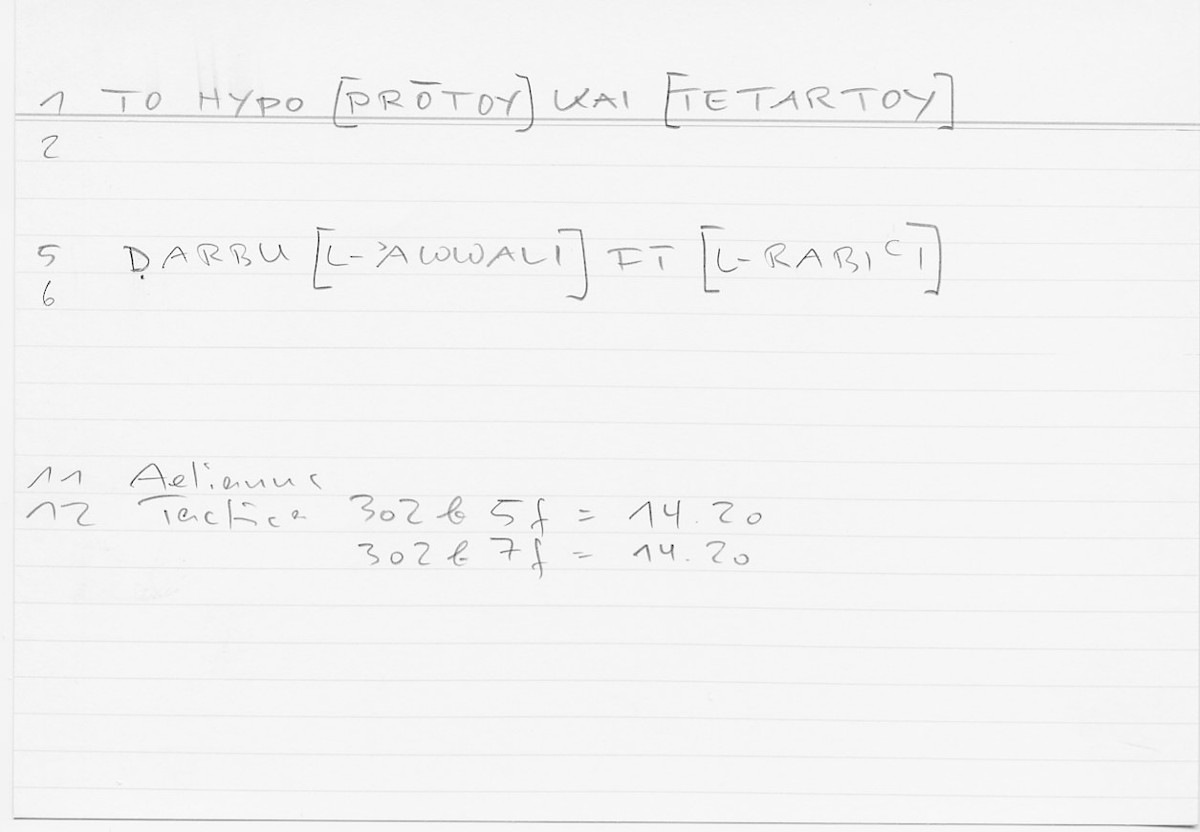 1 TO HYPO [PRŌTOY] KAI [TETARTOY]
2
5 ḌARBU [L-ʾAWWALI] FĪ [L-RABIʿI]
6
11 Aelianus
12 Tactica 302 b 5 f = 14.20
302 b 7 f = 14.20